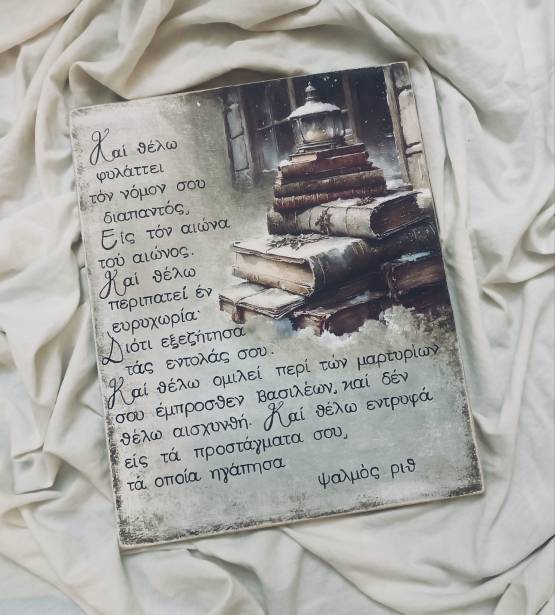 Καί θέλω
φυλάττει
τόν νόμον σου
διαπαντός,
Είς τόν αιώνα
τού αιώνος.
Καί θέλω
περιπατεί έν
ευρυχωρία·
Διότι εξεζήτησα
τάς εντολάς σου.
Καί θέλω ομιλεί περί τών μαρτυρίων
σου έμπροσθεν Βασιλέων, καί δέν
θέλω αισχυνθή. Καί θέλω εντρυφά
είς τά προστάγματα σου,
τά οποία ηγάπησα
ψαλμός ριθ